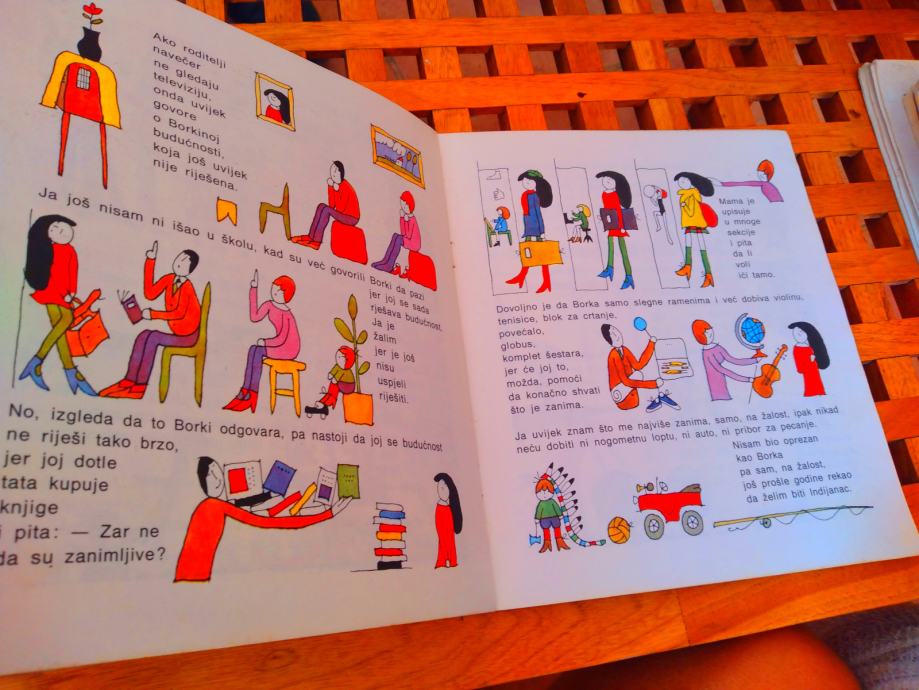 Ako roditelji
navečer
ne gledaju
televiziju,
onda uvijek
govore
o Borkinoj
budućnosti,
koja još uvijek
nije riješena.
Ja još nisam ni išao u školu, kad su već govorili Borki da pazi
jer joj se sada
rješava budućnost.
Ja je
žalim
jer je još
nisu
uspjeli
riješiti.
No, izgleda da to Borki odgovara, pa nastoji da joj se budućnost
ne riješi tako brzo,
jer joj dotle
tata kupuje
knjige
i pita: — Zar ne
da su zanimljive?
Mama je
upisuje
u mnoge
sekcije
i pita
da li
voli
ići tamo.
Dovoljno je da Borka samo slegne ramenima i već dobiva violinu,
tenisice, blok za crtanje,
povećalo,
globus,
komplet šestara,
jer će joj to,
možda, pomoći
da konačno shvati
što je zanima.
Ja uvijek znam što me najviše zanima, samo, na žalost, ipak nikad
neću dobiti ni nogometnu loptu, ni auto, ni pribor za pecanje.
Nisam bio oprezan
kao Borka
pa sam, na žalost,
još prošle godine rekao
da želim biti Indijanac.